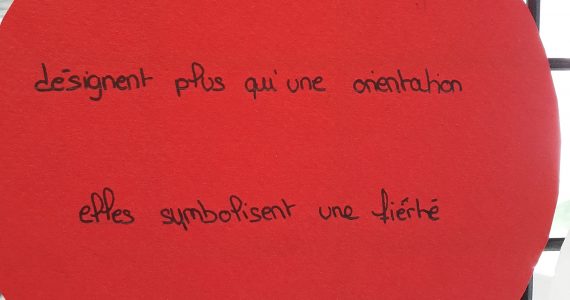 désignent plus qu'une orientation
elles symbolisent une fiérté